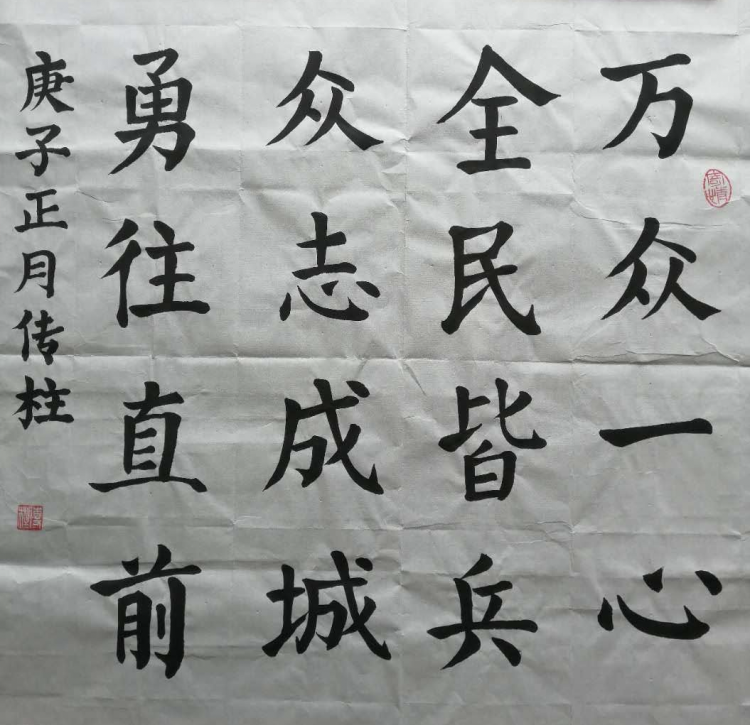 万众一心
全民皆兵
众志成城
勇往直前
庚子正月传柱